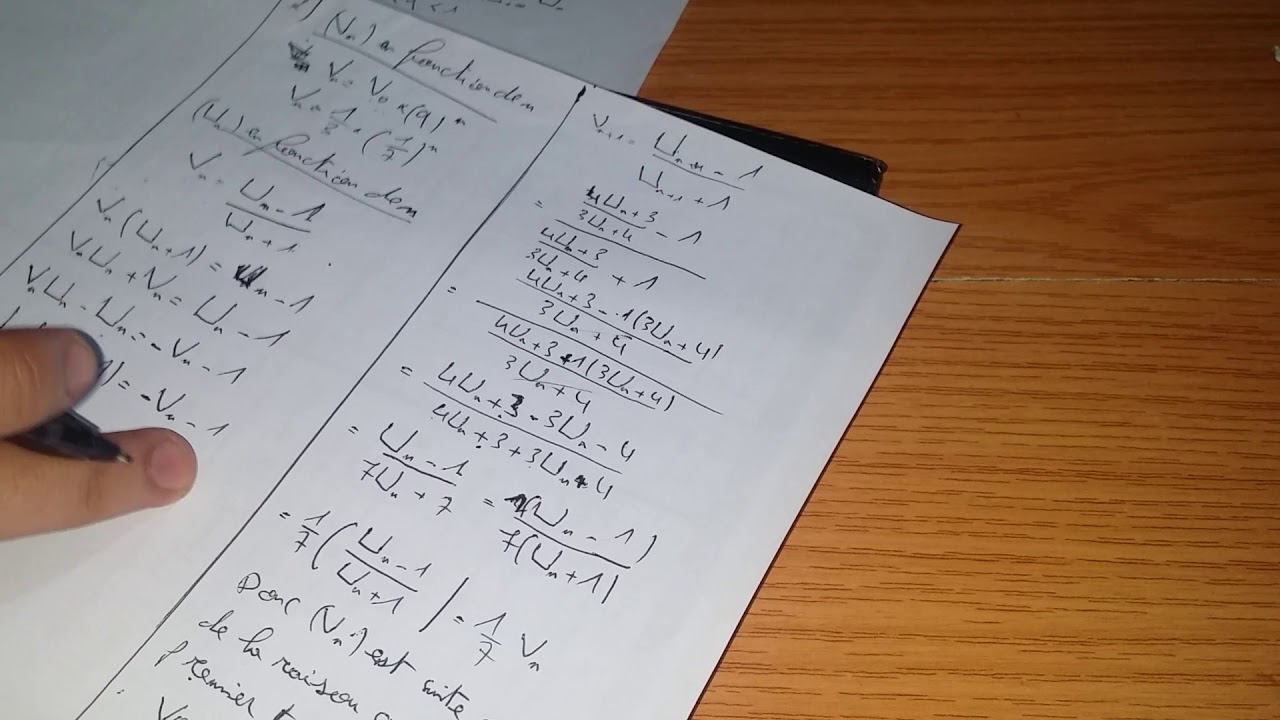 (Vn) en fonction de n
Vn = V0 × (q)^n
Vn = 1/3 × (1/7)^n
(Un) en fonction de n
Vn = (Un - 1)/(Un + 1)
Vn(Un + 1) = Un - 1
VnUn + Vn = Un - 1
VnUn - Un = -Vn - 1
1) = -Vn - 1
Vn+1 = (Un+1 - 1)/(Un+1 + 1)
= ((4Un+3)/(3Un+4) - 1)/((4Un+3)/(3Un+4) + 1)
= ((4Un+3 - 1(3Un+4))/(3Un+4))/((4Un+3+1(3Un+4))/(3Un+4))
= (4Un+3 - 3Un - 4)/(4Un+3+3Un+4)
= (Un - 1)/(7Un + 7) = 1(Un - 1)/7(Un + 1)
= 1/7 ((Un - 1)/(Un + 1)) = 1/7 Vn
Donc (Vn) est suite
de la raison
premier